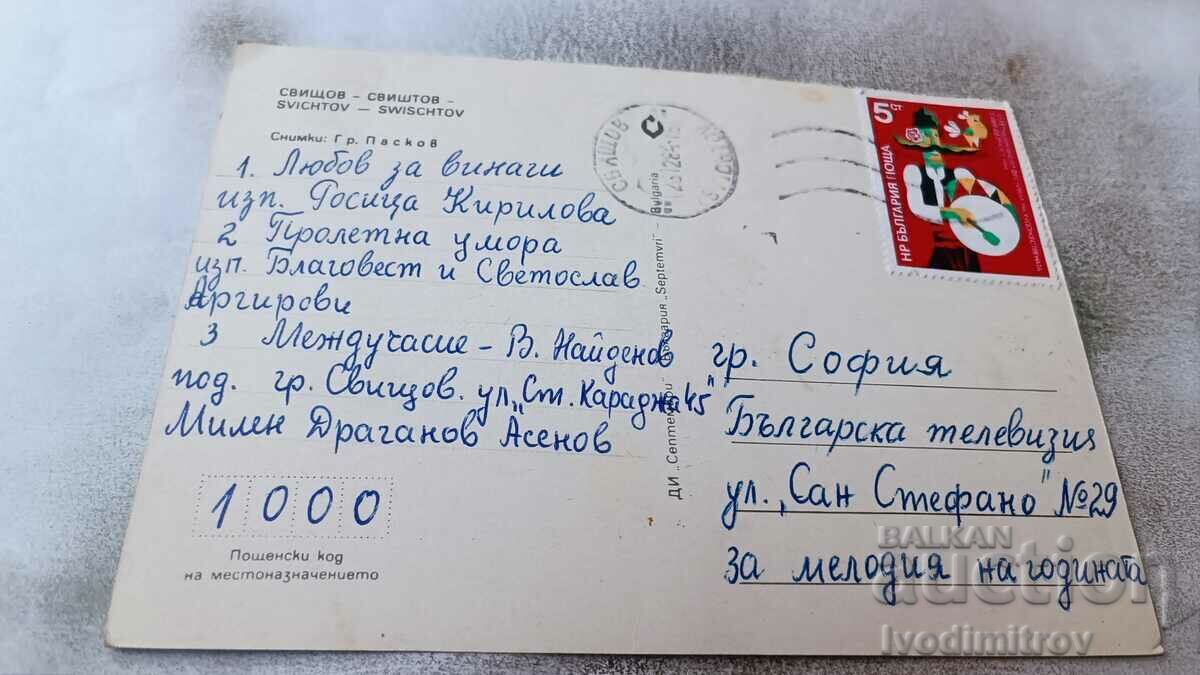 СВИЩОВ – СВИШТОВ –
SVICHTOV — SWISCHTOV
Снимки: Гр. Пасков
1. Любов за винаги
изп. Росица Кирилова
2 Пролетна умора
изп. Благовест и Светослав
Аргирови
3 Междучасие – В. Найденов
под. гр. Свищов. ул. „Ст. Караджа 45"
Милен Драганов Асенов
1000
Пощенски код
на местоназначението
ДИ „Септември" България „Septemvri" - Bulgaria
СВИЩОВ
5 СТ
НР БЪЛГАРИЯ ПОЩА
гр. София
Българска телевизия
ул. „Сан Стефано" №29
за мелодия на годината
BALKAN
auction
Ivodimitrov